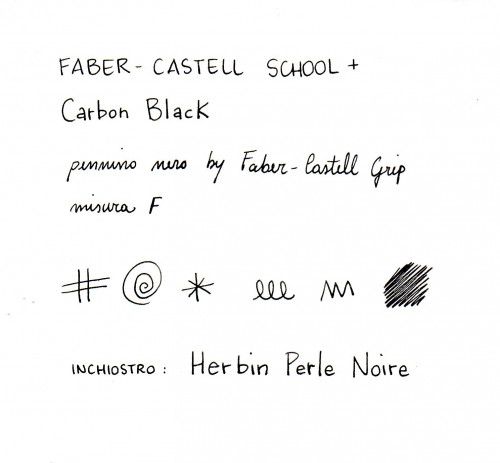 FABER-CASTELL SCHOOL +
Carbon Black
pennino nero by Faber-Castell Grip
misura F
# @ *
INCHIOSTRO: Herbin Perle Noire